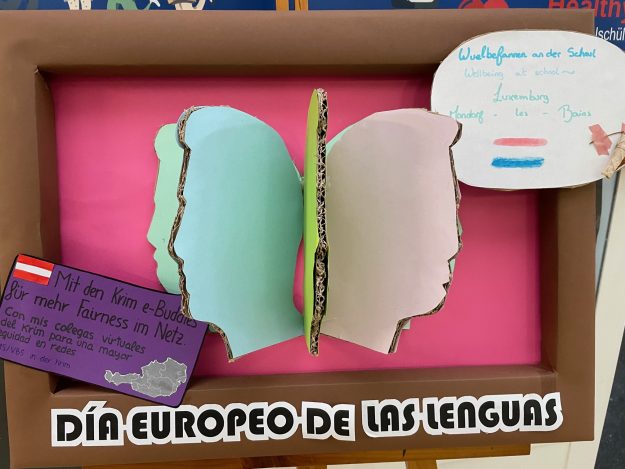 Healthy
Wuelbefannen an der Schoul
Wellbeing at school
Luxemburg
Mondorf - les - Bains
Mit den Krim e-Buddies
für mehr Fairness im Netz.
Con mis colegas virtuales
del Krim para una mayor
equidad en redes
in der Krim
DÍA EUROPEO DE LAS LENGUAS